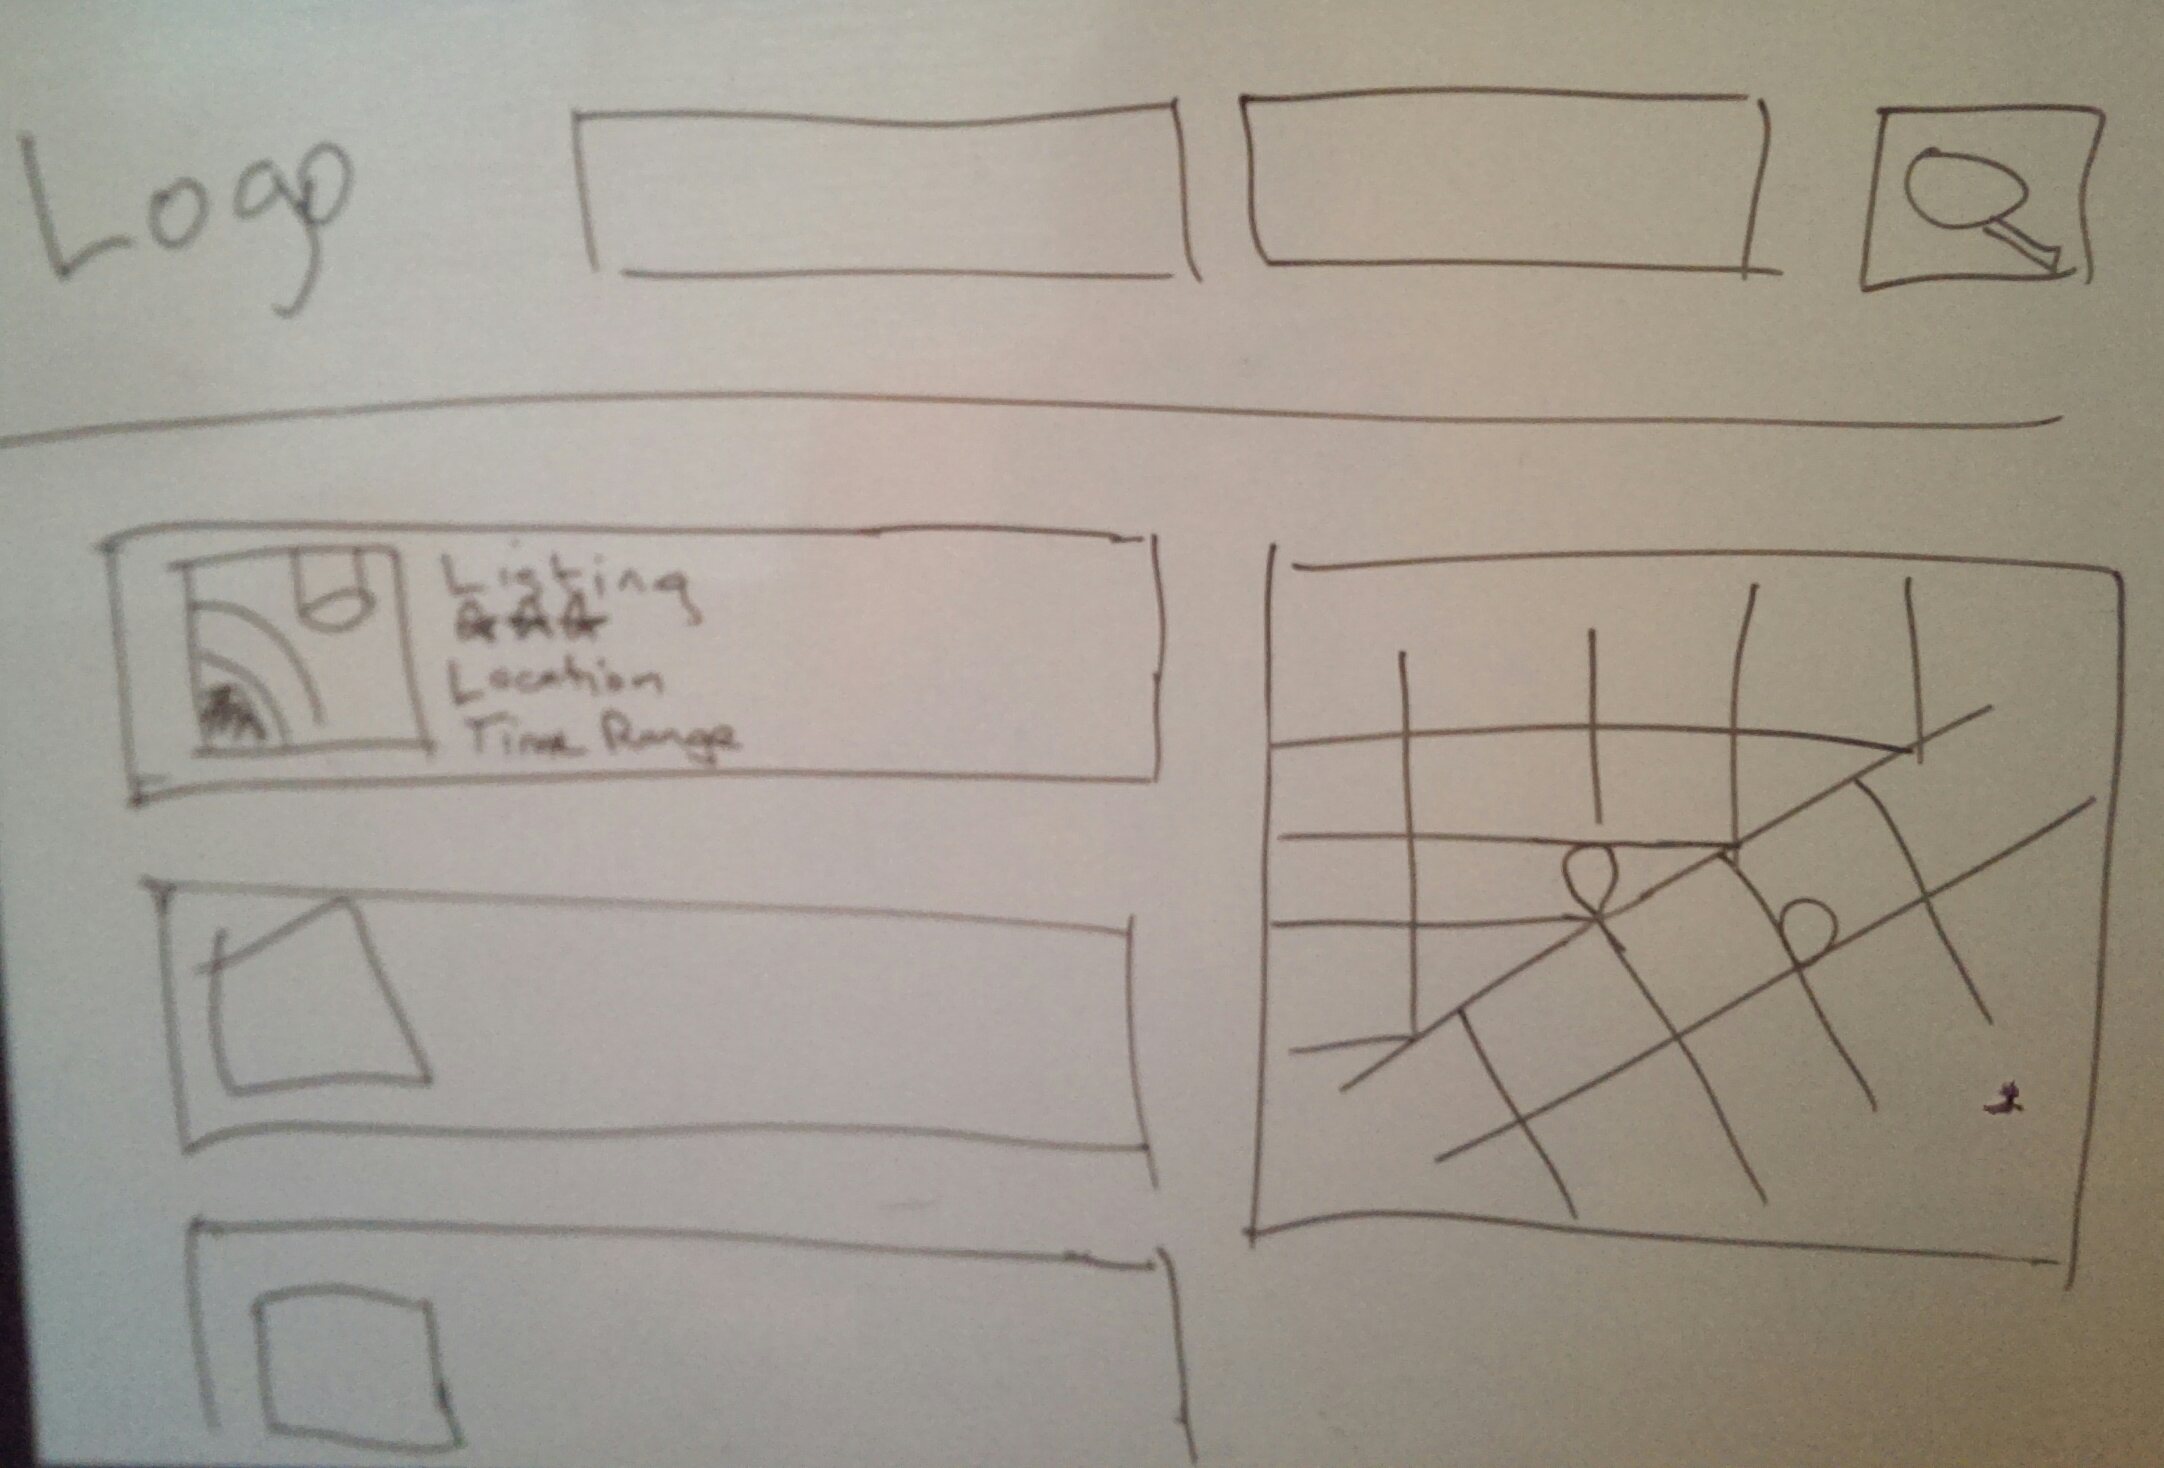 Logo
Listing
Location
Time Range